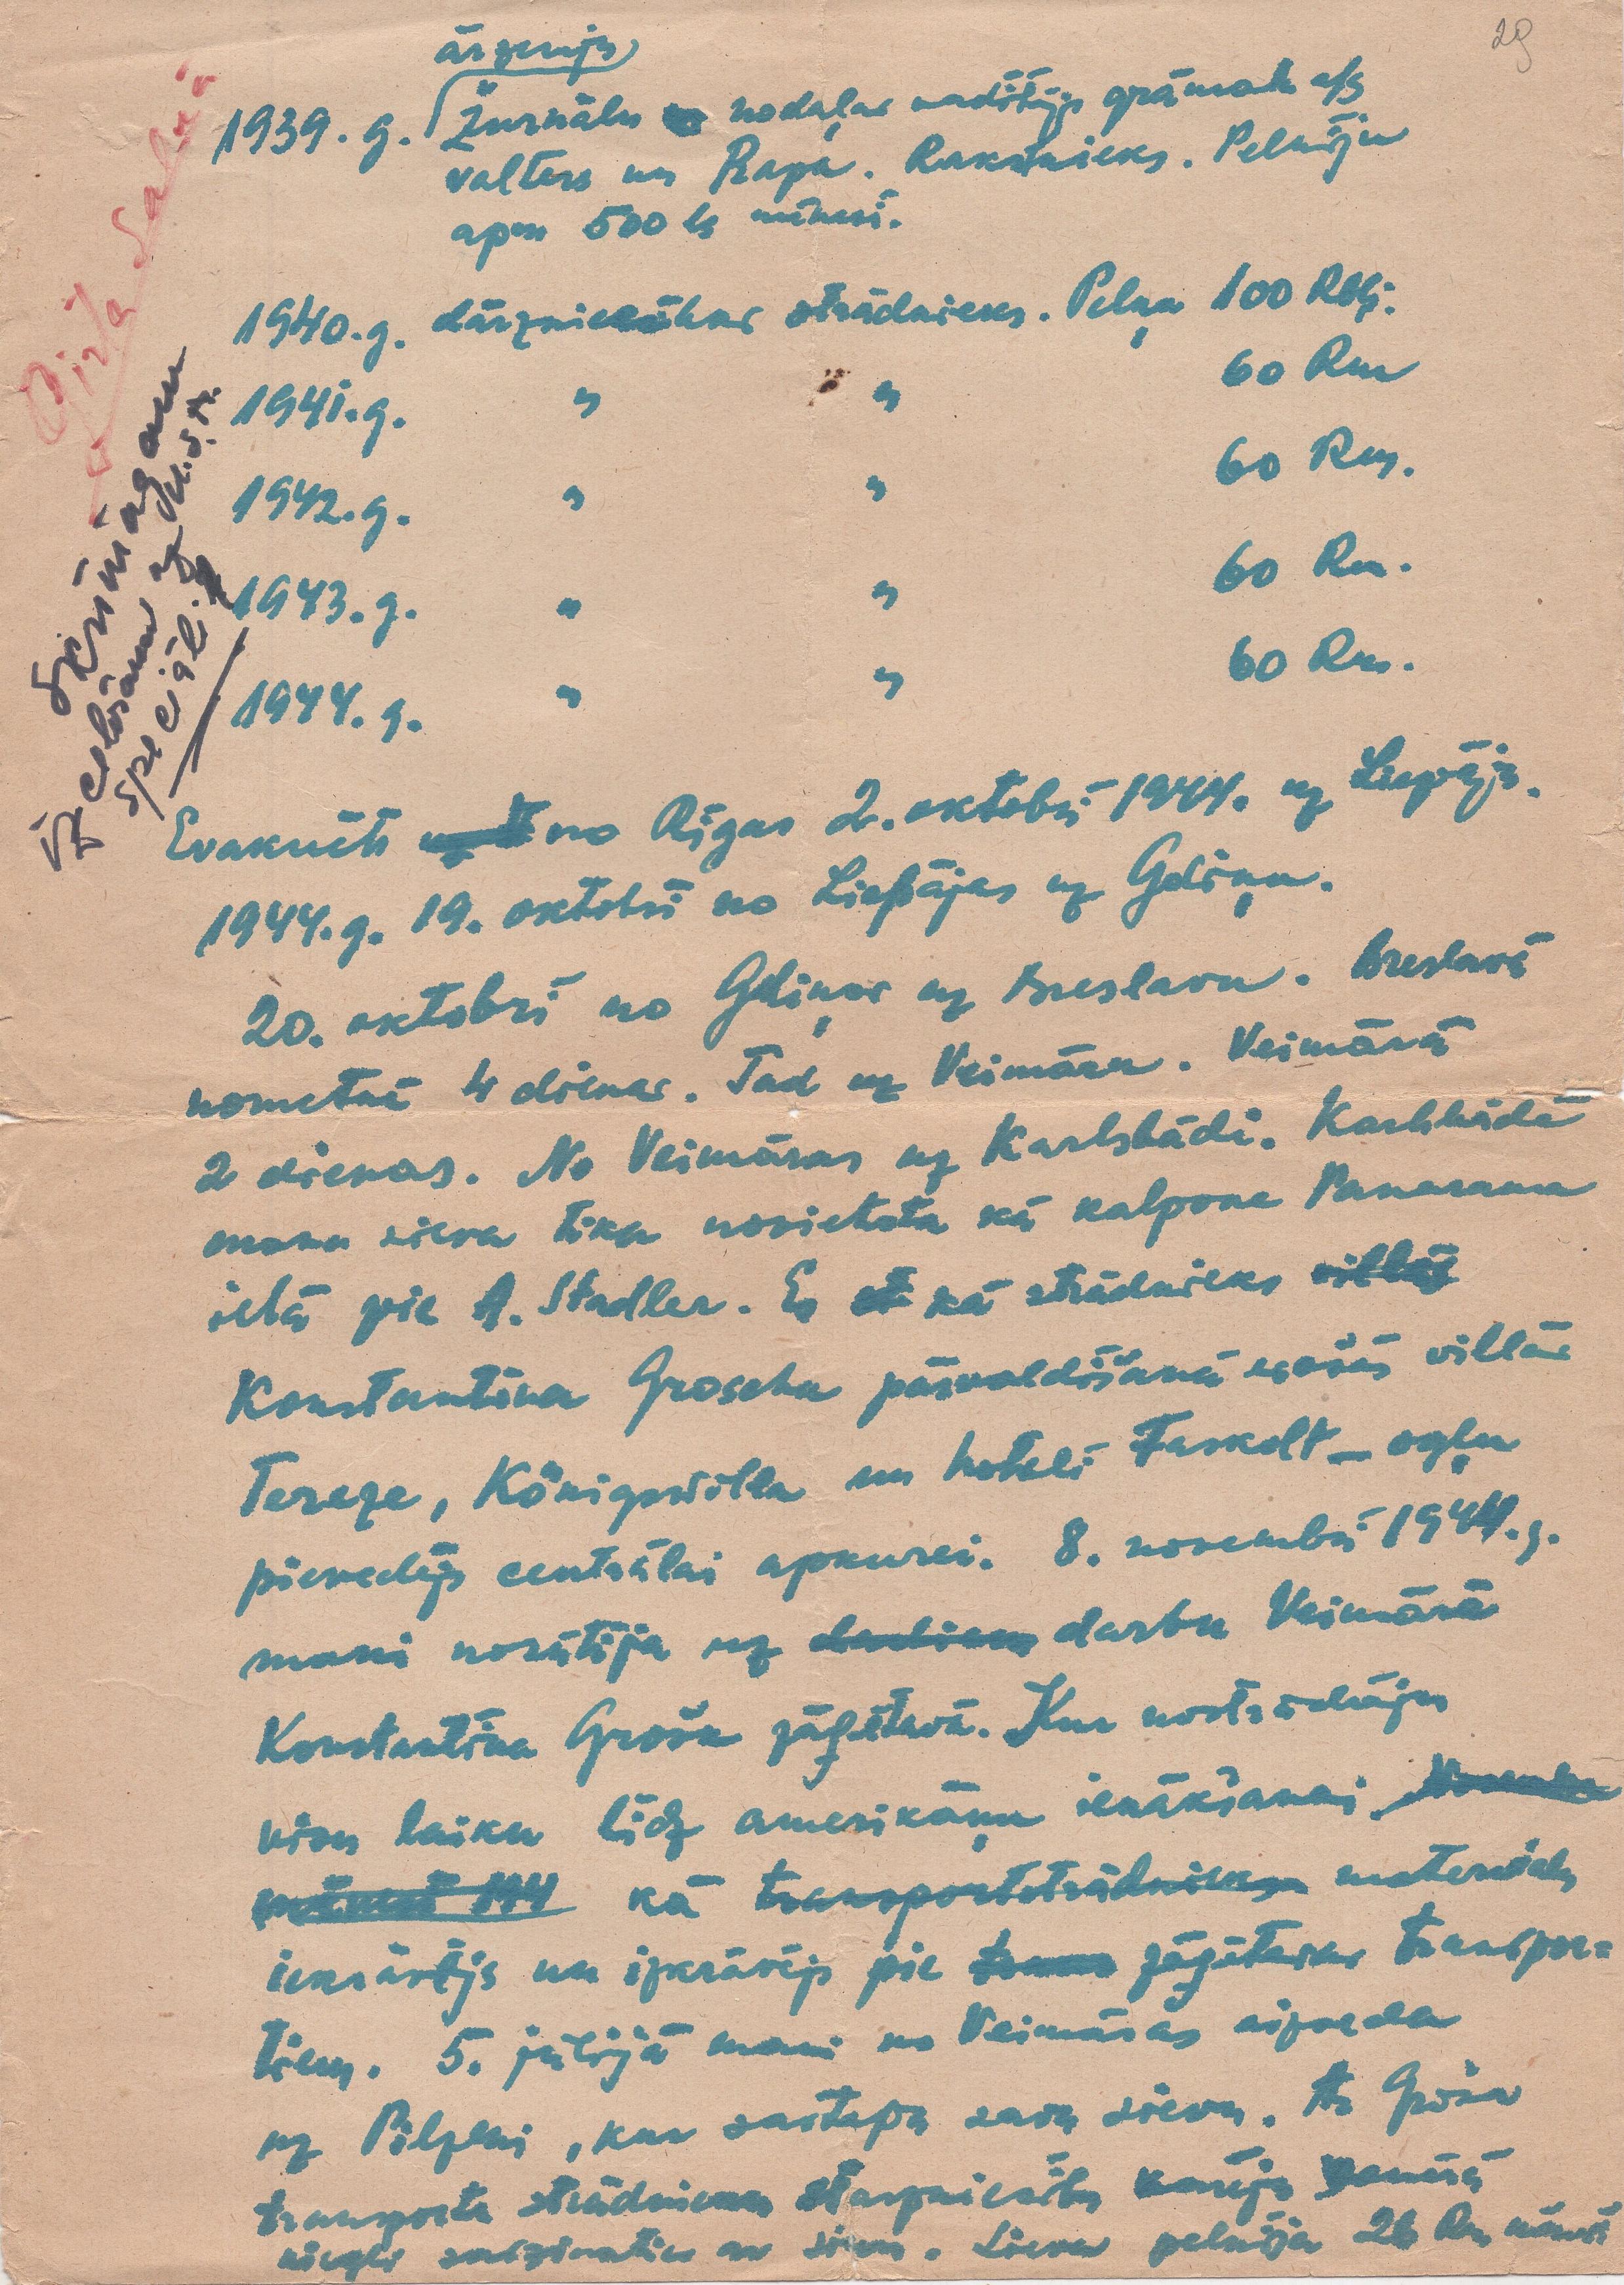 29
ārzemju
1939. g. Žurnālu nodaļas vadītājs grāmatu a/s
Valters un Rapa. Rakstnieks. Pelnīju
apm 500 ls mēnesī.
1940. g. dārzniecības strādnieks. Peļņa 100 Rbļ.
1941. g. " " 60 Rm
1942. g. " " 60 Rm.
1943. g. " " 60 Rm.
1944. g. " " 60 Rm.
Evakuēti no Rīgas 2. oktobrī 1944. uz Liepāju.
1944. g. 19. oktobrī no Liepājas uz Gdiņu.
20. oktobrī no Gdiņas uz Breslavu. Breslavā
nometnē 4 dienas. Tad uz Veimāru. Veimārā
2 dienas. No Veimāras uz Karlsbādi. Karlsbādē
mana sieva tika nosūtīta kā kalpone Panorama
ielā pie A. Stadler. Es kā strādnieks villās
Konstantīna Groscha pārvaldīšanā esošās villās
Tereze, Königsvilla un hotelī Faskolt – ogļu
pievedējs centrālai apkurei. 8. novembrī 1944. g.
mani nosūtīja uz darbu Veimārā
Konstantīna Groša zāģētavā. Kur nostrādāju
visu laiku līdz amerikāņu ienākšanai
mēnesī 1944 kā transportstrādnieks materiālu
iekrāvējs un izkrāvējs pie zāģētavas transpor=
tiem. 5. jūlijā mani no Veimāras aizveda
uz Pilzeni, kur sastapu savu sievu. Ar Groša
transporta strādnieku starpniecību varēju
sazināties ar sievu. Sieva pelnīja 26 Rm mēnesī
Ģirts Salnais
Izceļošanu uz U.S.A.
speciāli